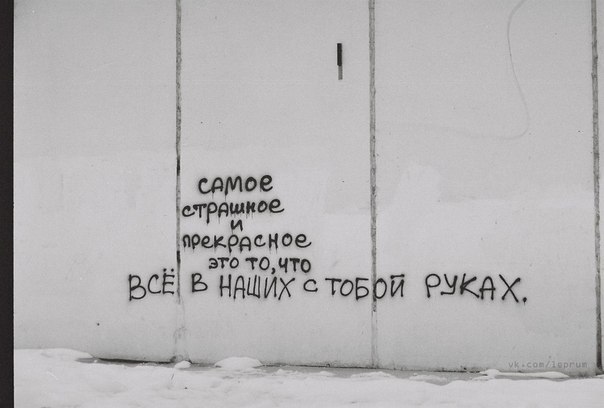 самое
страшное
и
прекрасное
это то, что
ВСЁ В НАШИХ С ТОБОЙ РУКАХ.
vk.com/ioprum